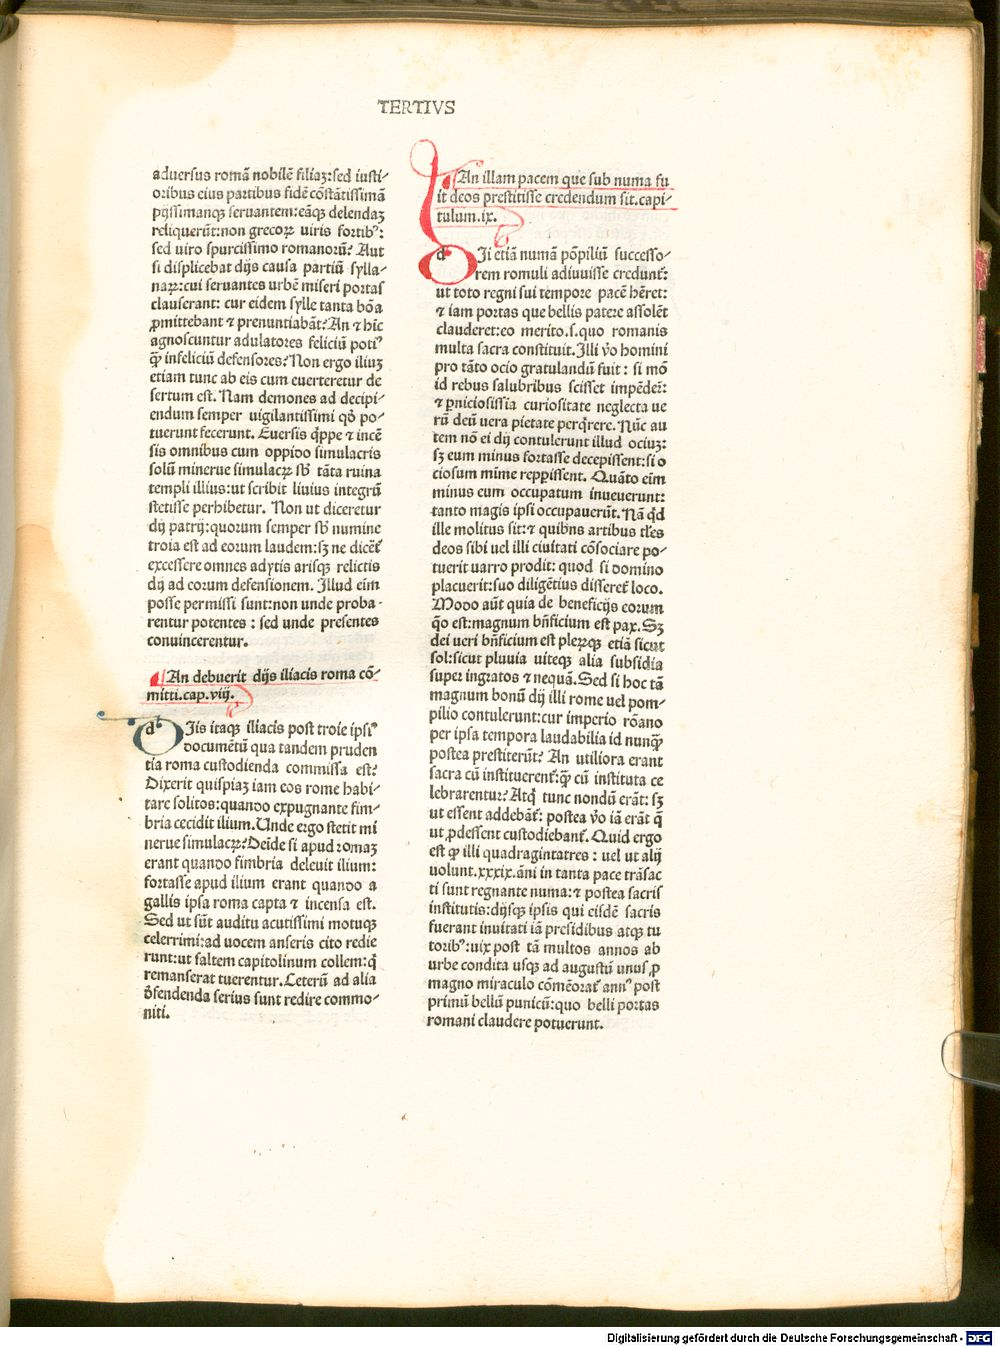 TERTIVS
aduersus romã nobilẽ filiaꝫ:sed iusti⸗
oribus eius partibus fidẽ cõstãtissimã
pijssimamqꝫ seruantem:eãqꝫ delendaꝫ
reliquerũt:non grecoꝝ uiris fortibꝰ:
sed uiro spurcissimo romanorũ? Aut
si displicebat dijs causa partiũ sylla⸗
naꝝ:cui seruantes urbẽ miseri portas
clauserant: cur eidem sylle tanta bõa
ꝓmittebant ⁊ prenuntiabãt? An ⁊ hic
agnoscuntur adulatores feliciũ potiꝰ
ꝙ̃ infeliciũ defensores? Non ergo iliuꝫ
etiam tunc ab eis cum euerteretur de
sertum est. Nam demones ad decipi⸗
endum semper uigilantissimi qď po⸗
tuerunt fecerunt. Euersis q̃ppe ⁊ incẽ
sis omnibus cum oppido simulacris
solũ minerue simulacꝝ sƀ tãta ruina
templi illius:ut scribit liuius integrũ
stetisse perhibetur. Non ut diceretur
dij patrij:quorum semper sƀ numine
troia est ad eorum laudem:sꝫ ne dicẽt̃
excessere omnes adytis arisqꝫ relictis
dij ad eorum defensionem. Illud eim̃
posse permissi sunt:non unde proba⸗
rentur potentes : sed unde presentes
conuincerentur.
An debuerit dijs iliacis roma cõ⸗
mitti.cap.viij.
dIis itaqꝫ iliacis post troie ipsiꝰ
documẽtũ qua tandem pruden
tia roma custodienda commissa est?
Dixerit quispiaꝫ iam eos rome habi⸗
tare solitos:quando expugnante fim⸗
bria cecidit ilium.Unde ergo stetit mi
nerue simulacꝝ?Deĩde si apud romaꝫ
erant quando fimbria deleuit ilium:
fortasse apud ilium erant quando a
gallis ipsa roma capta ⁊ incensa est.
Sed ut sũt auditu acutissimi motuqꝫ
celerrimi:ad uocem anseris cito redie
runt:ut saltem capitolinum collem:q̃
remanserat tuerentur.Ceterũ ad alia
ďfendenda serius sunt redire commo⸗
niti.
An illam pacem que sub numa fu
it deos prestitisse credendum sit.capi⸗
tulum.ix.
dIj etiã numã põpiliũ successo⸗
rem romuli adiuuisse credunt̃:
ut toto regni sui tempore pacẽ hẽret:
⁊ iam portas que bellis patere assolẽt
clauderet:eo merito.s.quo romanis
multa sacra constituit.Illi v̊o homini
pro tãto ocio gratulandũ fuit : si mõ
id rebus salubribus scisset impẽdeř:
⁊ ꝑniciosissia curiositate neglecta ue
rũ deũ uera pietate perq̃rere. Nũc au
tem nõ ei dij contulerunt illud ociuꝫ:
sꝫ eum minus fortasse decepissent:si o
ciosum mime reppissent. Quãto eim̃
minus eum occupatum inueuerunt:
tanto magis ipsi occupauerũt. Nã qď
ille molitus sit:⁊ quibns artibus tl̃es
deos sibi uel illi ciuitati cõsociare po⸗
tuerit uarro prodit: quod si domino
placuerit:suo diligẽtius disseret̃ loco.
Modo aũt quia de beneficijs eorum
q̃o est:magnum bñficium est pax. Sꝫ
dei ueri bñficium est pleꝝqꝫ etiã sicut
sol:sicut pluuia uiteqꝫ alia subsidia
super ingratos ⁊ nequã.Sed si hoc tã
magnum bonũ dij illi rome uel pom⸗
pilio contulerunt:cur imperio rõano
per ipsa tempora laudabilia id nunqꝫ̃
postea prestiterũt? An utiliora erant
sacra cũ instituerent̃:ꝙ̃ cũ instituta ce
lebrarentur? Atq̃ tunc nondũ erãt: sꝫ
ut essent addebãt̃: postea v̊o iã erãt q̃
ut ꝓdessent custodiebant̃. Quid ergo
est ꝙ illi quadragintatres : uel ut alij
uolunt.xxxix.ãni in tanta pace trãsac
ti sunt regnante numa:⁊ postea sacris
institutis:dijsqꝫ ipsis qui eisdẽ sacris
fuerant inuitati iã presidibus atqꝫ tu
toribꝰ:uix post tã multos annos ab
urbe condita usqꝫ ad augustũ unusꝓ
magno miraculo cõmẽorat̃ annꝰ post
primũ bellũ punicũ:quo belli portas
romani claudere potuerunt.
Digitalisierung gefördert durch die Deutsche Forschungsgemeinschaft - DFG